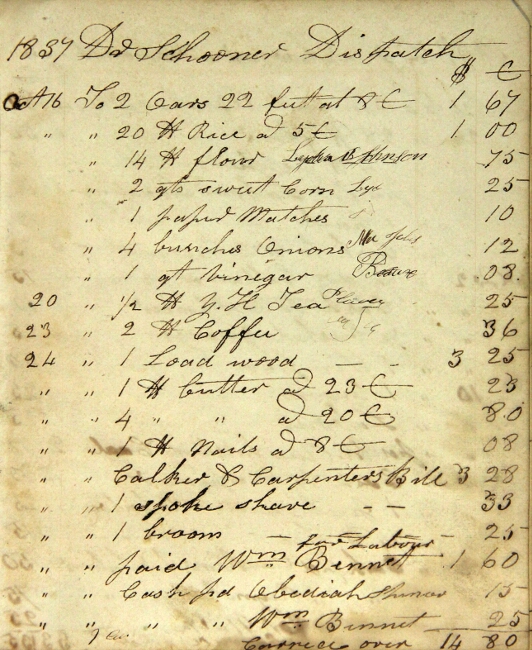 1837 Dr Schooner Dispatch
$ C
Oct 16 To 2 Oars 22 feet at 8 C 1 67
" " 20 lb Rice a 5 C 1 00
" 14 lb flour 75
" 2 qts sweet Corn 25
" 1 paper Matches 10
" 4 bunches Onions 12
" 1 qt Vinegar 08
20 " 1/2 lb Y. H. Tea 25
23 " 2 lb Coffee 36
24 " 1 Load wood — — 3 25
" " 1 lb butter a 23 C 23
" " 4 " " a 20 C 80
" " 1 lb Nails a 8 C 08
" " Calker & Carpenters Bill 3 28
" " 1 spoke shave — — 33
" " 1 broom — 25
for Labour
" " paid Wm Bennet 1 60
" " Cash pd Obediah 15
" " " " Wm Bennet 25
Carried over 14 80